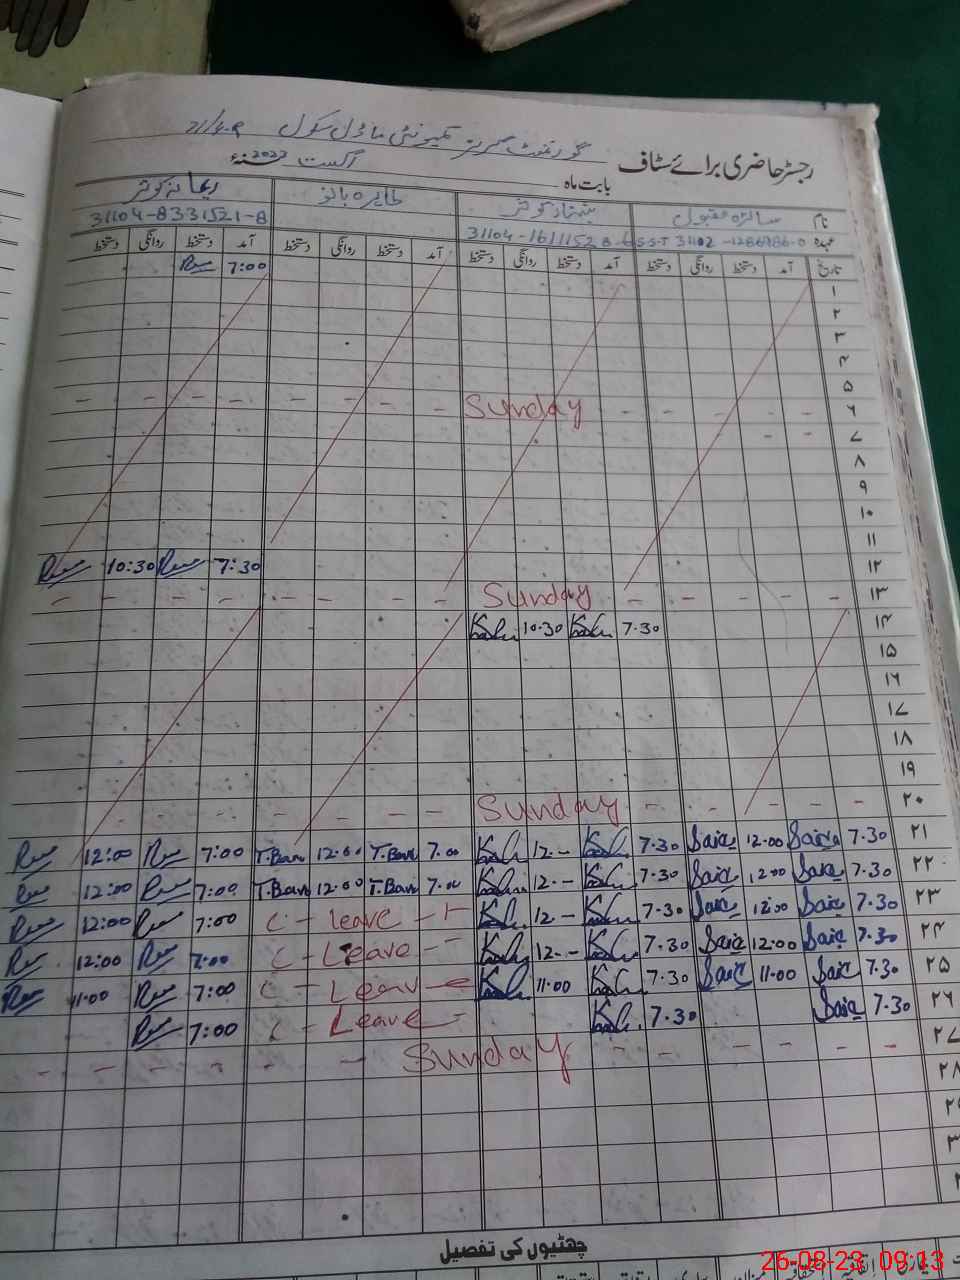 گورنمنٹ گرلز کمیونٹی ماڈل سکول 71/4-R
رجسٹر حاضری برائے سٹاف بابت ماہ اگست 2023 سنہء
نام سائرہ مقبول ممتاز کوثر طاہرہ بانو ریحانہ کوثر
عہدہ S.S.T 31102-1286986-0 31104-1611152 31104-8331521-8
تاریخ آمد دستخط روانگی دستخط آمد دستخط روانگی دستخط آمد دستخط روانگی دستخط آمد دستخط روانگی دستخط
7:00
۱
۲
۳
۴
۵
۶ Sunday
۷
۸
۹
۱۰
۱۱
۱۲ 7:30 10:30
۱۳ Sunday
۱۴ 7.30 10.30
۱۵
۱۶
۱۷
۱۸
۱۹
۲۰ Sunday
۲۱ 7.30 Saira 12.00 Saira 7.30 12.- 7.00 T.Bano 12.00 T.Bano 7:00 12:00
۲۲ 7.30 Saira 12.00 Saira 7.30 12.- 7.00 T.Bano 12.00 T.Bano 7:00 12:00
۲۳ 7.30 Saira 12:00 Saira 7.30 12.- C - Leave 7:00 12:00
۲۴ 7.30 Saira 12.00 Saira 7.30 12.- C - Leave 7.00 12:00
۲۵ 7.30 Saira 11.00 Saira 7.30 11.00 C - Leave 7:00 11.00
۲۶ 7.30 Saira 7.30 C - Leave 7:00
۲۷ Sunday
۲۸
چھٹیوں کی تفصیل
26-08-23 09:13